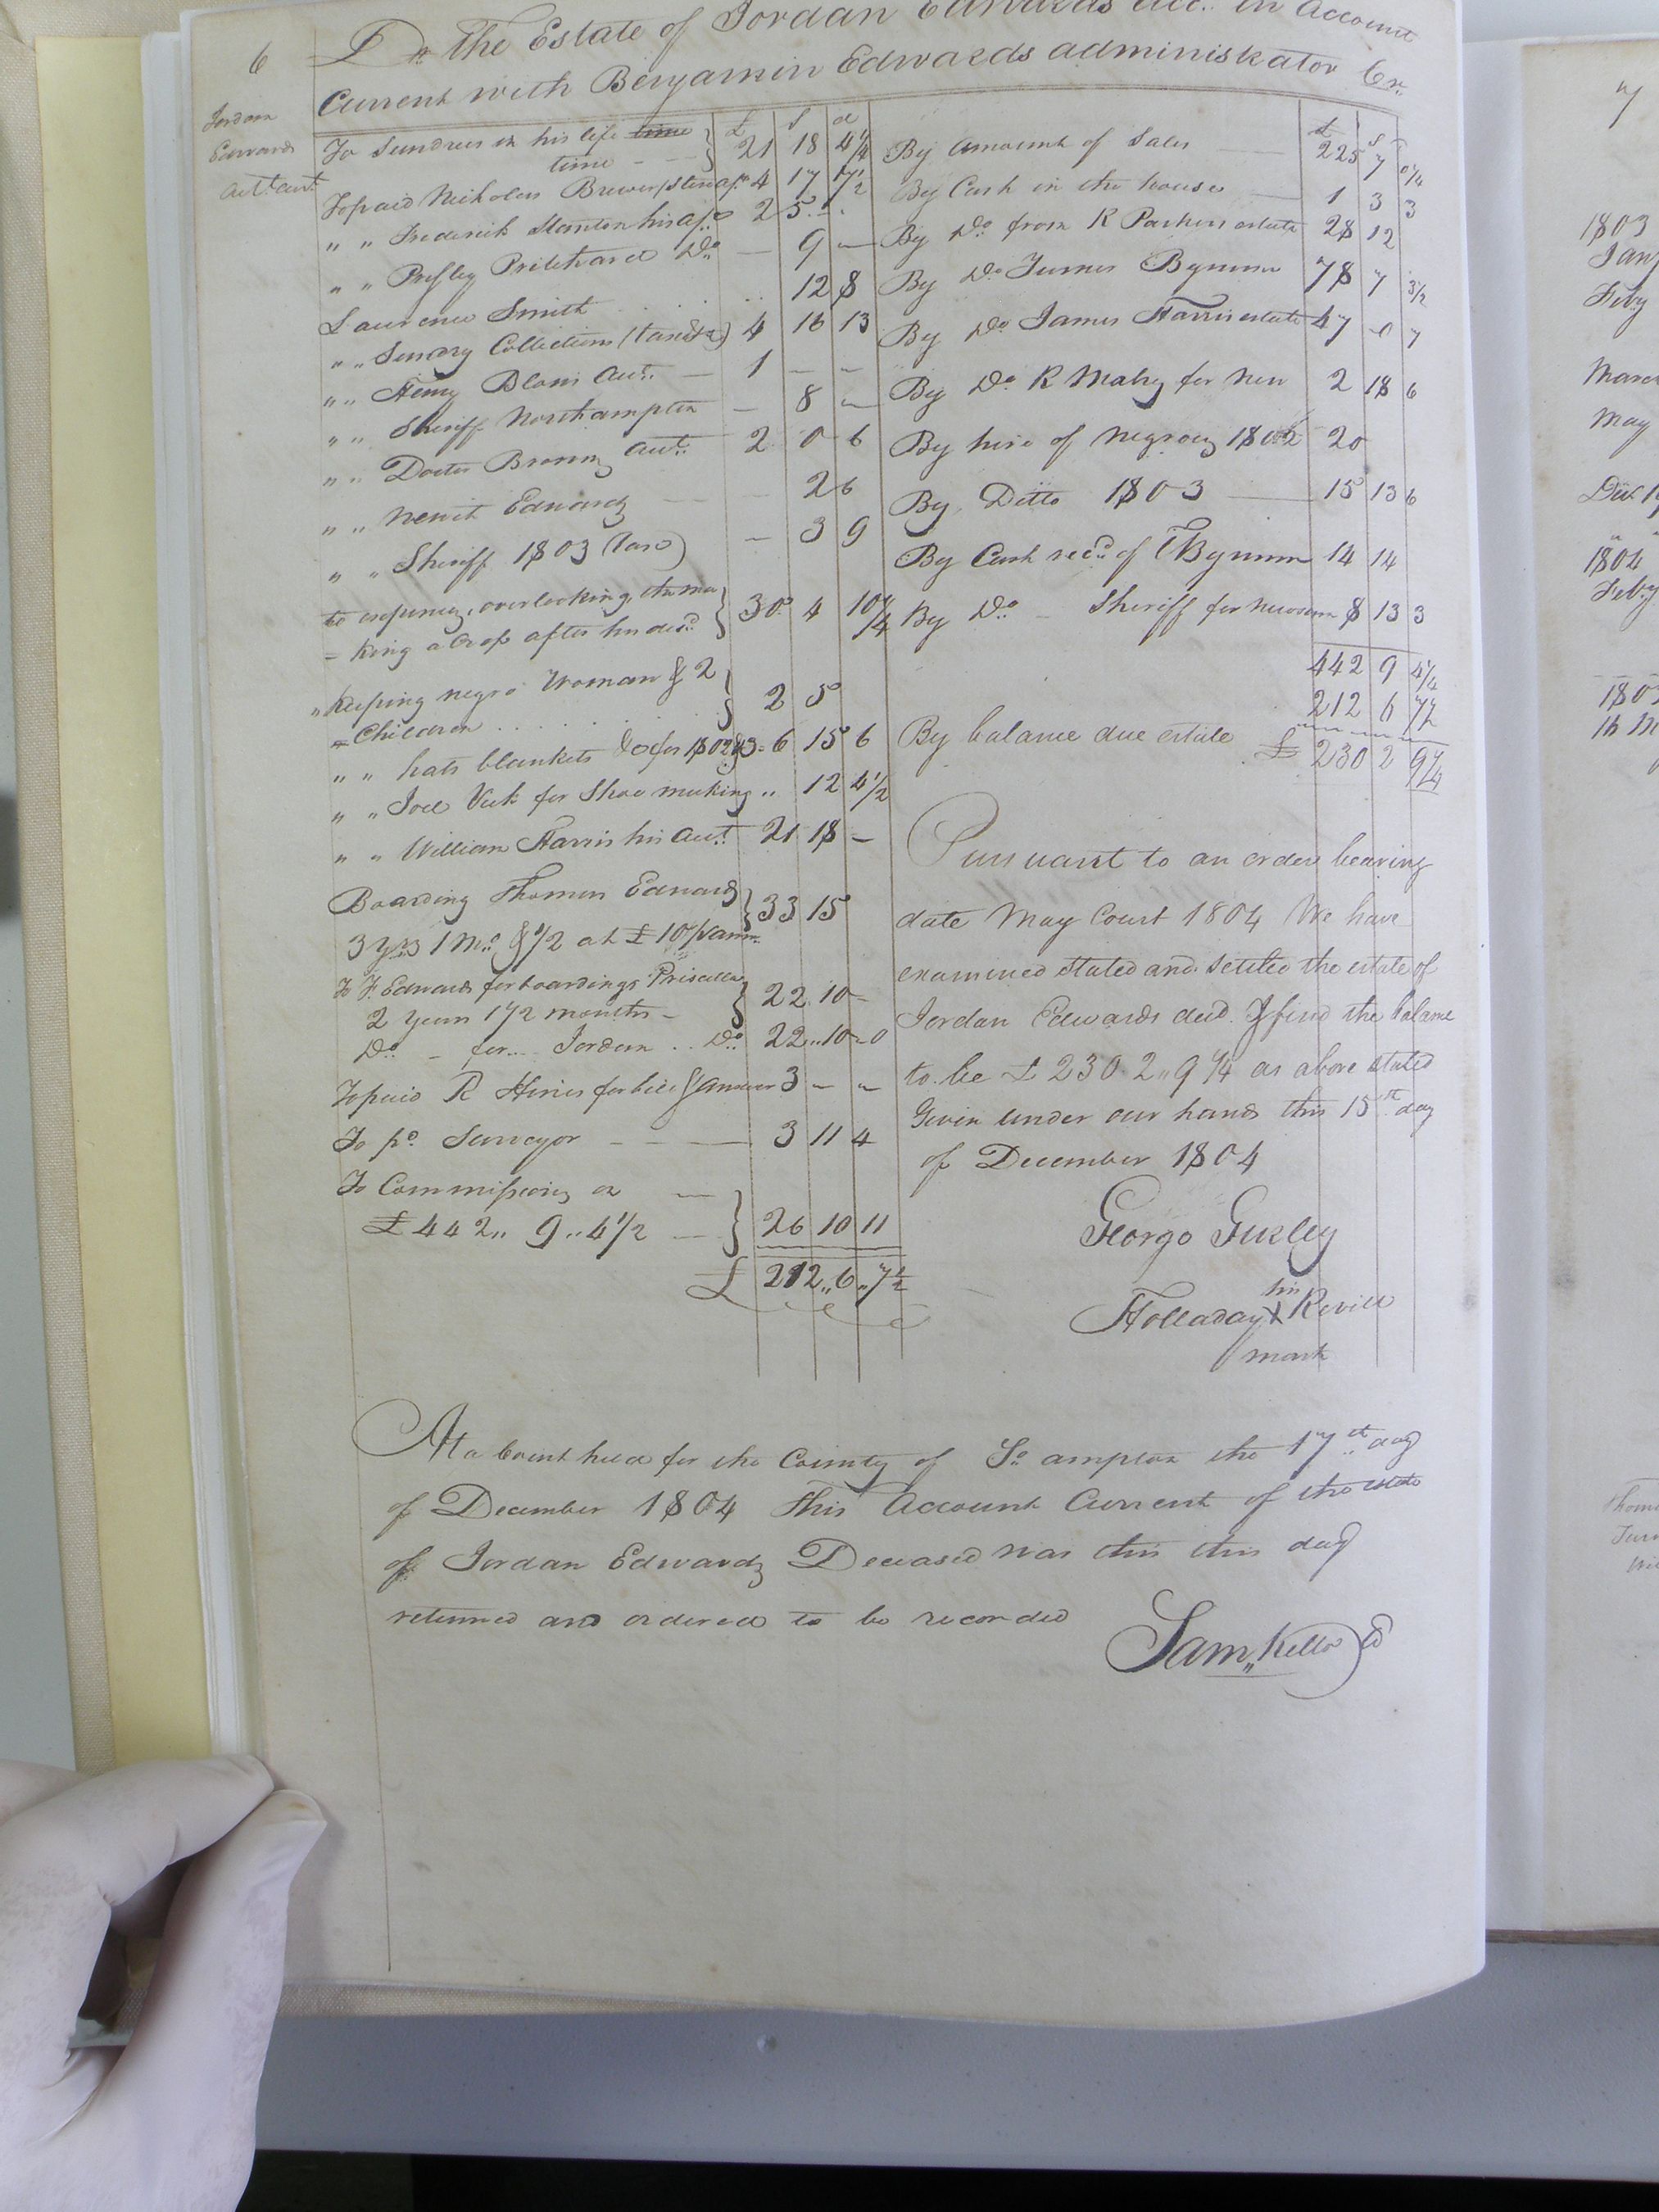 6
Dr. The Estate of Jordan Edwards decd. in account
Current with Benjamin Edwards administrator Cr.
Jordan
Edwards
acct. curt.
£ s d
To Sundries in his life time
time - - 21 18 4 1/4
To paid Nicholas Brewer 4 17 7 1/2
" " Frederick Stanton his a/c 2 5 - .
" " Presley Pritchard Do. — 9 —
Laurence Smith . . . . 12 8
" " Sundry Collections 4 16 13
" " Henry Blow Acct. — 1 - -
" " Sheriff Northampton — 8 -
" " Doctor Browns Acct. 2 0 6
" " Newit Edwards — 2 6
" " Sheriff 1803 (Tax) — 3 9
to expences, overlooking, & ma
= king a Crop after his decd. 30 4 10 1/4
" Keeping negro Woman & 2
= Children . . . . 2 5
" " hats blankets &c for 1802 & 3 - 6 15 6
" " Joel Vick for Shoe making " 12 4 1/2
" " William Harris his Acct. 21 18 -
Boarding Thomas Edwards
3 yrs 1 Mo. & 1/2 at £ 10 33 15
To F. Edwards for boarding Priscilla
2 years 1 1/2 months - 22 10 -
Do. - for ... Jordan .. Do. 22 " 10 - 0
To paid R Hines for bill & answer 3 - -
To pd. Surveyor - - — 3 11 4
To Commissions on —
£ 442 " 9 " 4 1/2 — 26 10 11
£ 212 " 6 " 7 1/2
£ s
By amount of Sales — 225 7 0 1/4
By Cash in the house — 1 3 3
By Do. from R Parkers estate 28 12
By Do. Turner Bynum 78 7 3 1/2
By Do. James Harris estate 47 - 0 7
By Do. R Mabry for 2 18 6
By hire of negroes 1802 20
By Ditto 1803 — 15 13 6
By Cash recd. of T Bynum 14 14
By Do. - Sheriff for Newsom 8 13 3
442 9 4 1/4
212 6 7 1/2
By balance due estate £ 230 2 9 1/4
Pursuant to an order bearing
date May Court 1804 We have
examined stated and settled the estate of
Jordan Edwards decd. & find the balance
to be £ 230 " 2 " 9 1/4 as above stated
Given under our hands this 15th. day
of December 1804
George Gurley
his
Holladay X Revill
mark
At a Court held for the County of So. ampton the 17th. day
of December 1804 This Account Current of the estate
of Jordan Edwards Deceased was this this day
returned and ordered to be recorded
Sam,, Kello
7
1803
Jany
Feby
March
May
1804
Feby